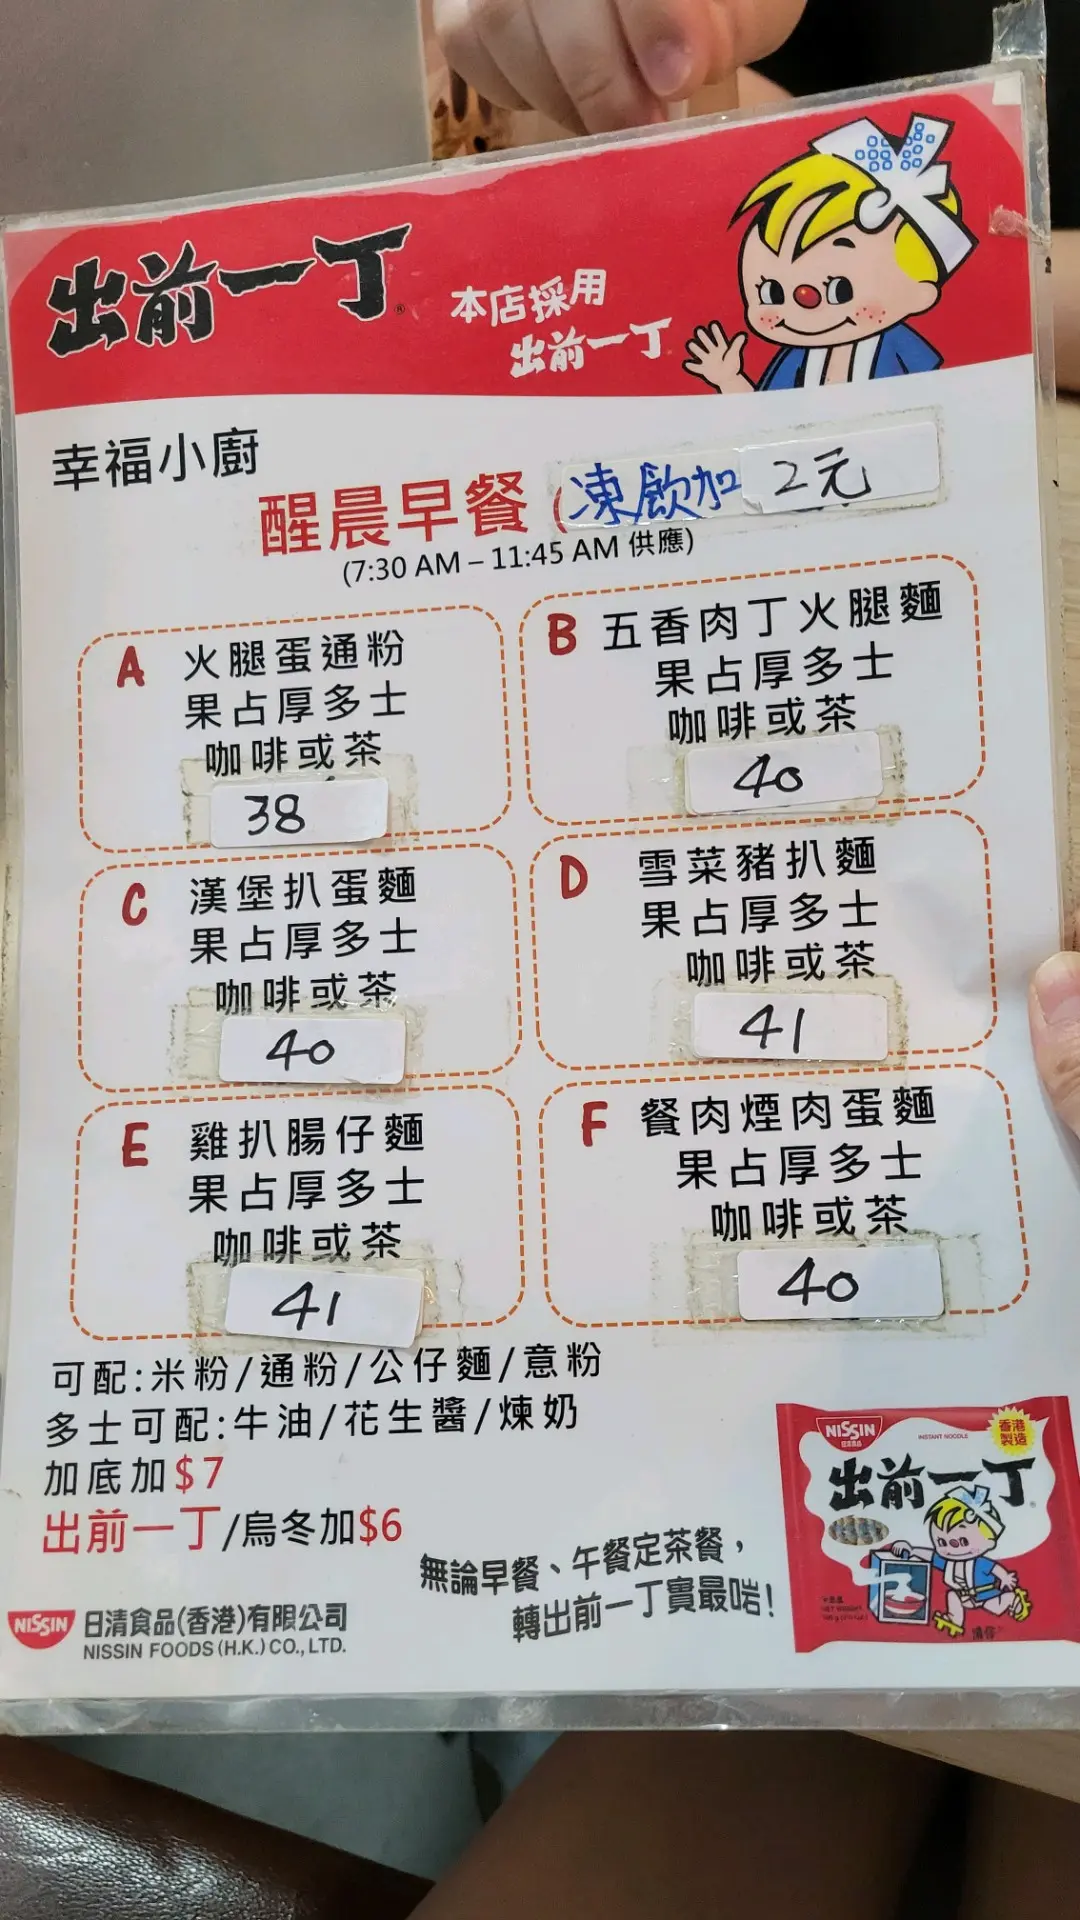 出前一丁®
本店採用
出前一丁
幸福小廚
醒晨早餐 (凍飲加 2元
(7:30 AM – 11:45 AM 供應)
A 火腿蛋通粉
果占厚多士
咖啡或茶
38
B 五香肉丁火腿麵
果占厚多士
咖啡或茶
40
C 漢堡扒蛋麵
果占厚多士
咖啡或茶
40
D 雪菜豬扒麵
果占厚多士
咖啡或茶
41
E 雞扒腸仔麵
果占厚多士
咖啡或茶
41
F 餐肉煙肉蛋麵
果占厚多士
咖啡或茶
40
可配:米粉/通粉/公仔麵/意粉
多士可配:牛油/花生醬/煉奶
加底加$7
出前一丁/烏冬加$6
無論早餐、午餐定茶餐，
轉出前一丁實最啱!
NISSIN 日清食品(香港)有限公司
NISSIN FOODS (H.K.) CO., LTD.
NISSIN
INSTANT NOODLE
香港
製造
出前一丁